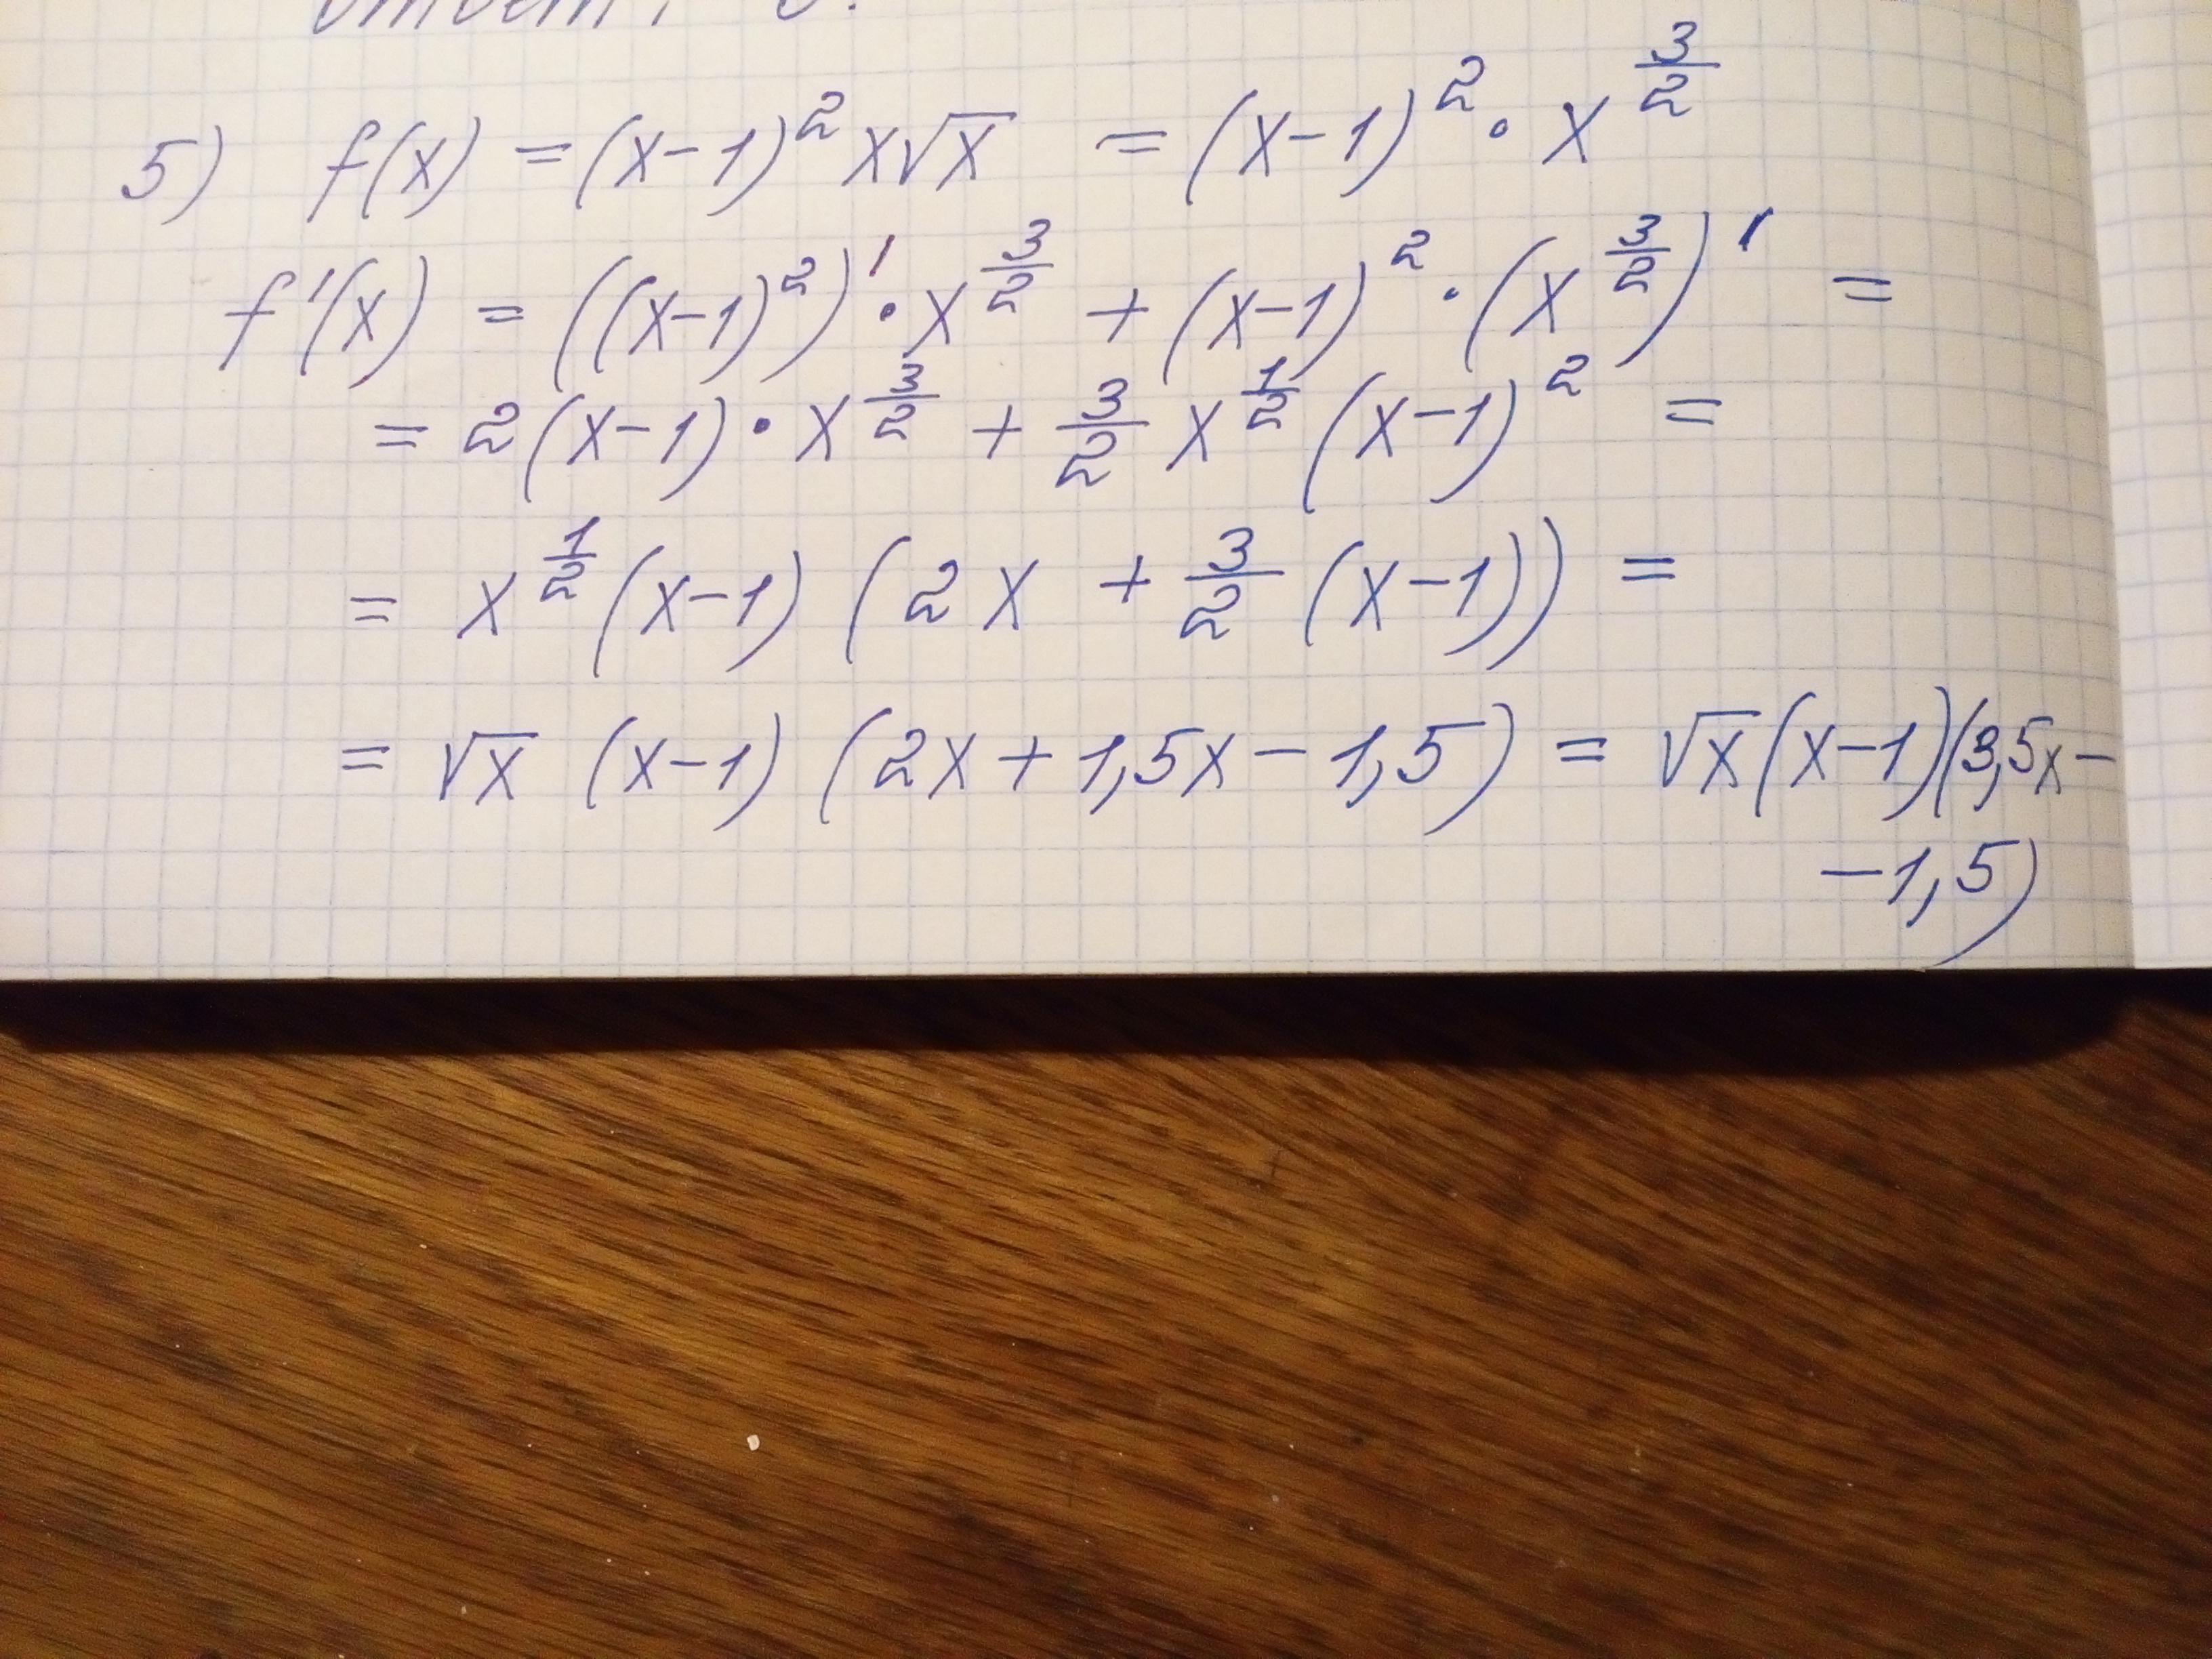 5) f(x) = (x-1)² x√x = (x-1)² · x^(3/2)
f'(x) = ((x-1)²)' · x^(3/2) + (x-1)² · (x^(3/2))' =
= 2(x-1) · x^(3/2) + 3/2 x^(1/2) (x-1)² =
= x^(1/2) (x-1) (2x + 3/2 (x-1)) =
= √x (x-1) (2x + 1,5x - 1,5) = √x (x-1)(3,5x -
- 1,5)